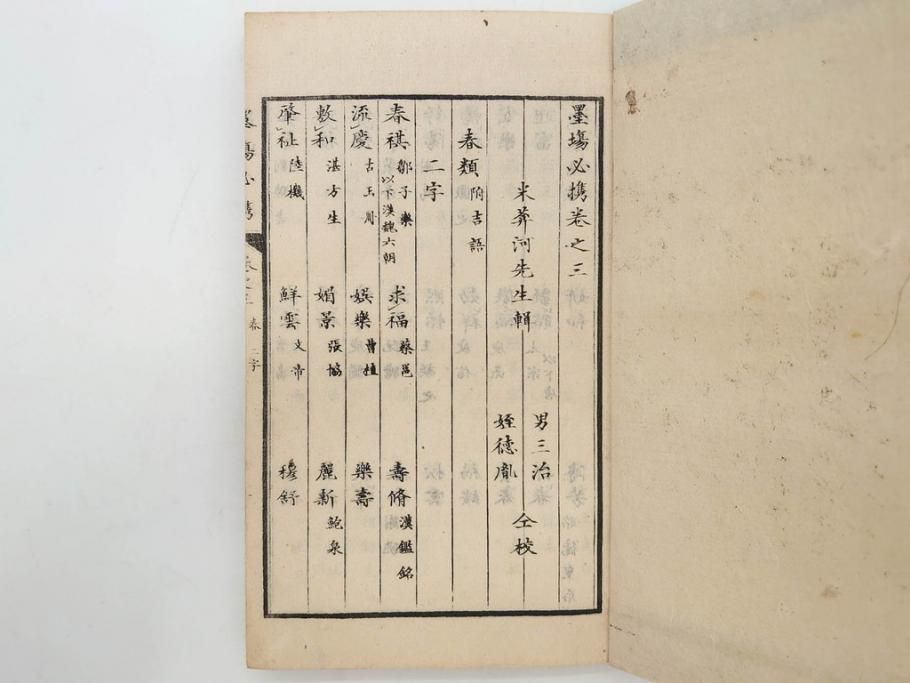 墨場必携卷之三
米葊河先生輯
男三治
姪德胤
仝校
春類 附吉語
二字
春祺 鄒子樂 以下漢魏六朝
求福 蔡邕
壽脩 漢鑑銘
流慶 古玉周
娯樂 曹植
樂壽
敷和 湛方生
媚景 張協
麗新 鮑泉
肇祉 陸機
鮮雲 文帝
穆舒
墨場必携 卷之三 春 二字